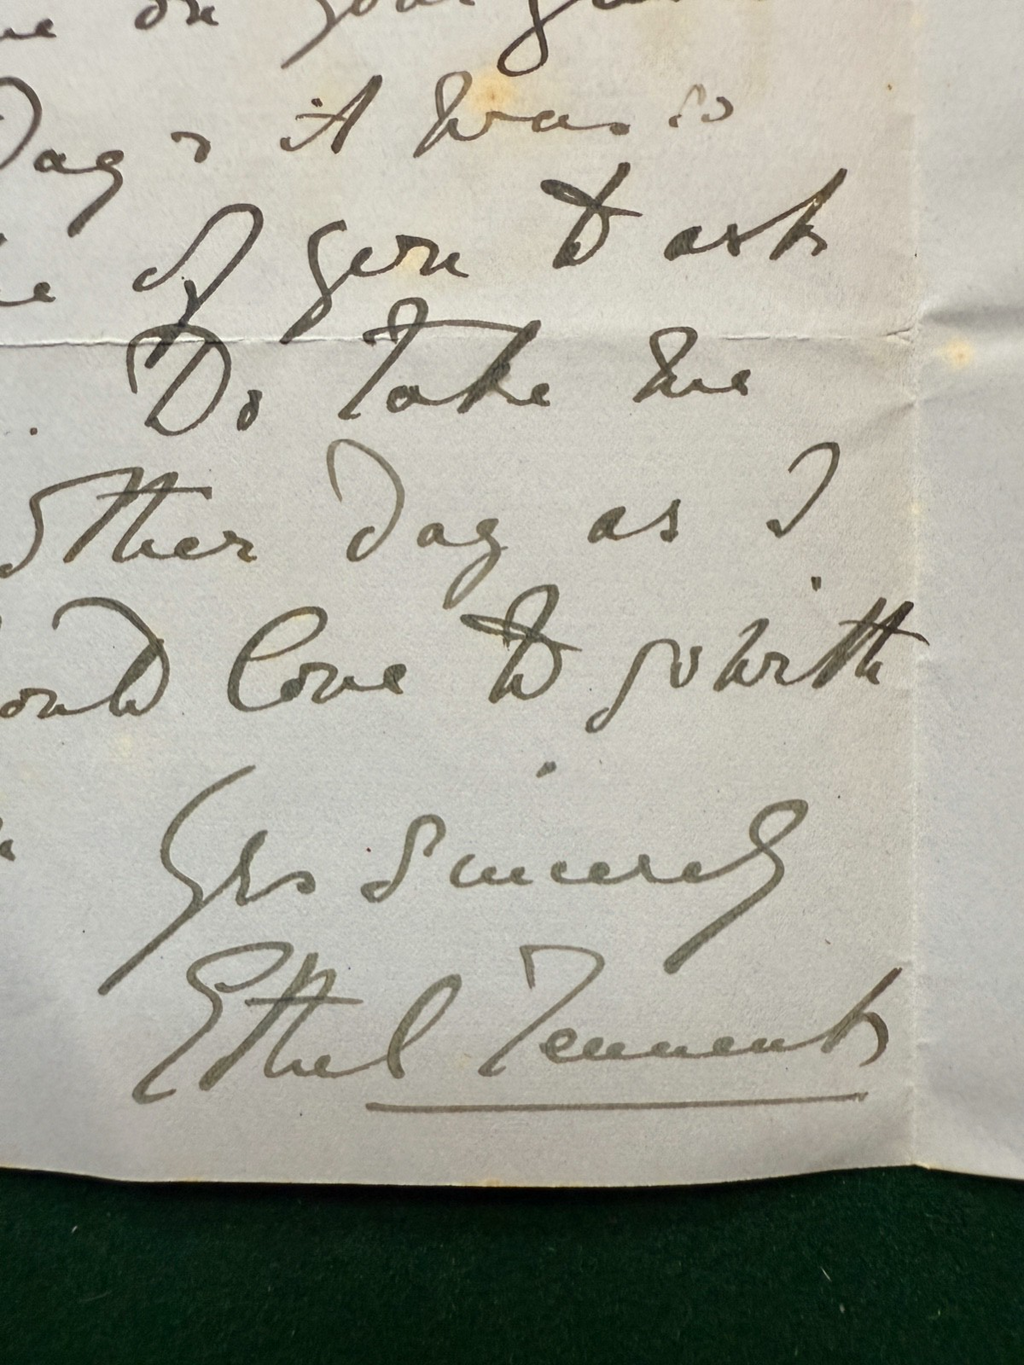 on your
Day & it was so
of you to ask
. Do take me
other day as I
would love to go with
Yrs Sincerely
Ethel Tennant